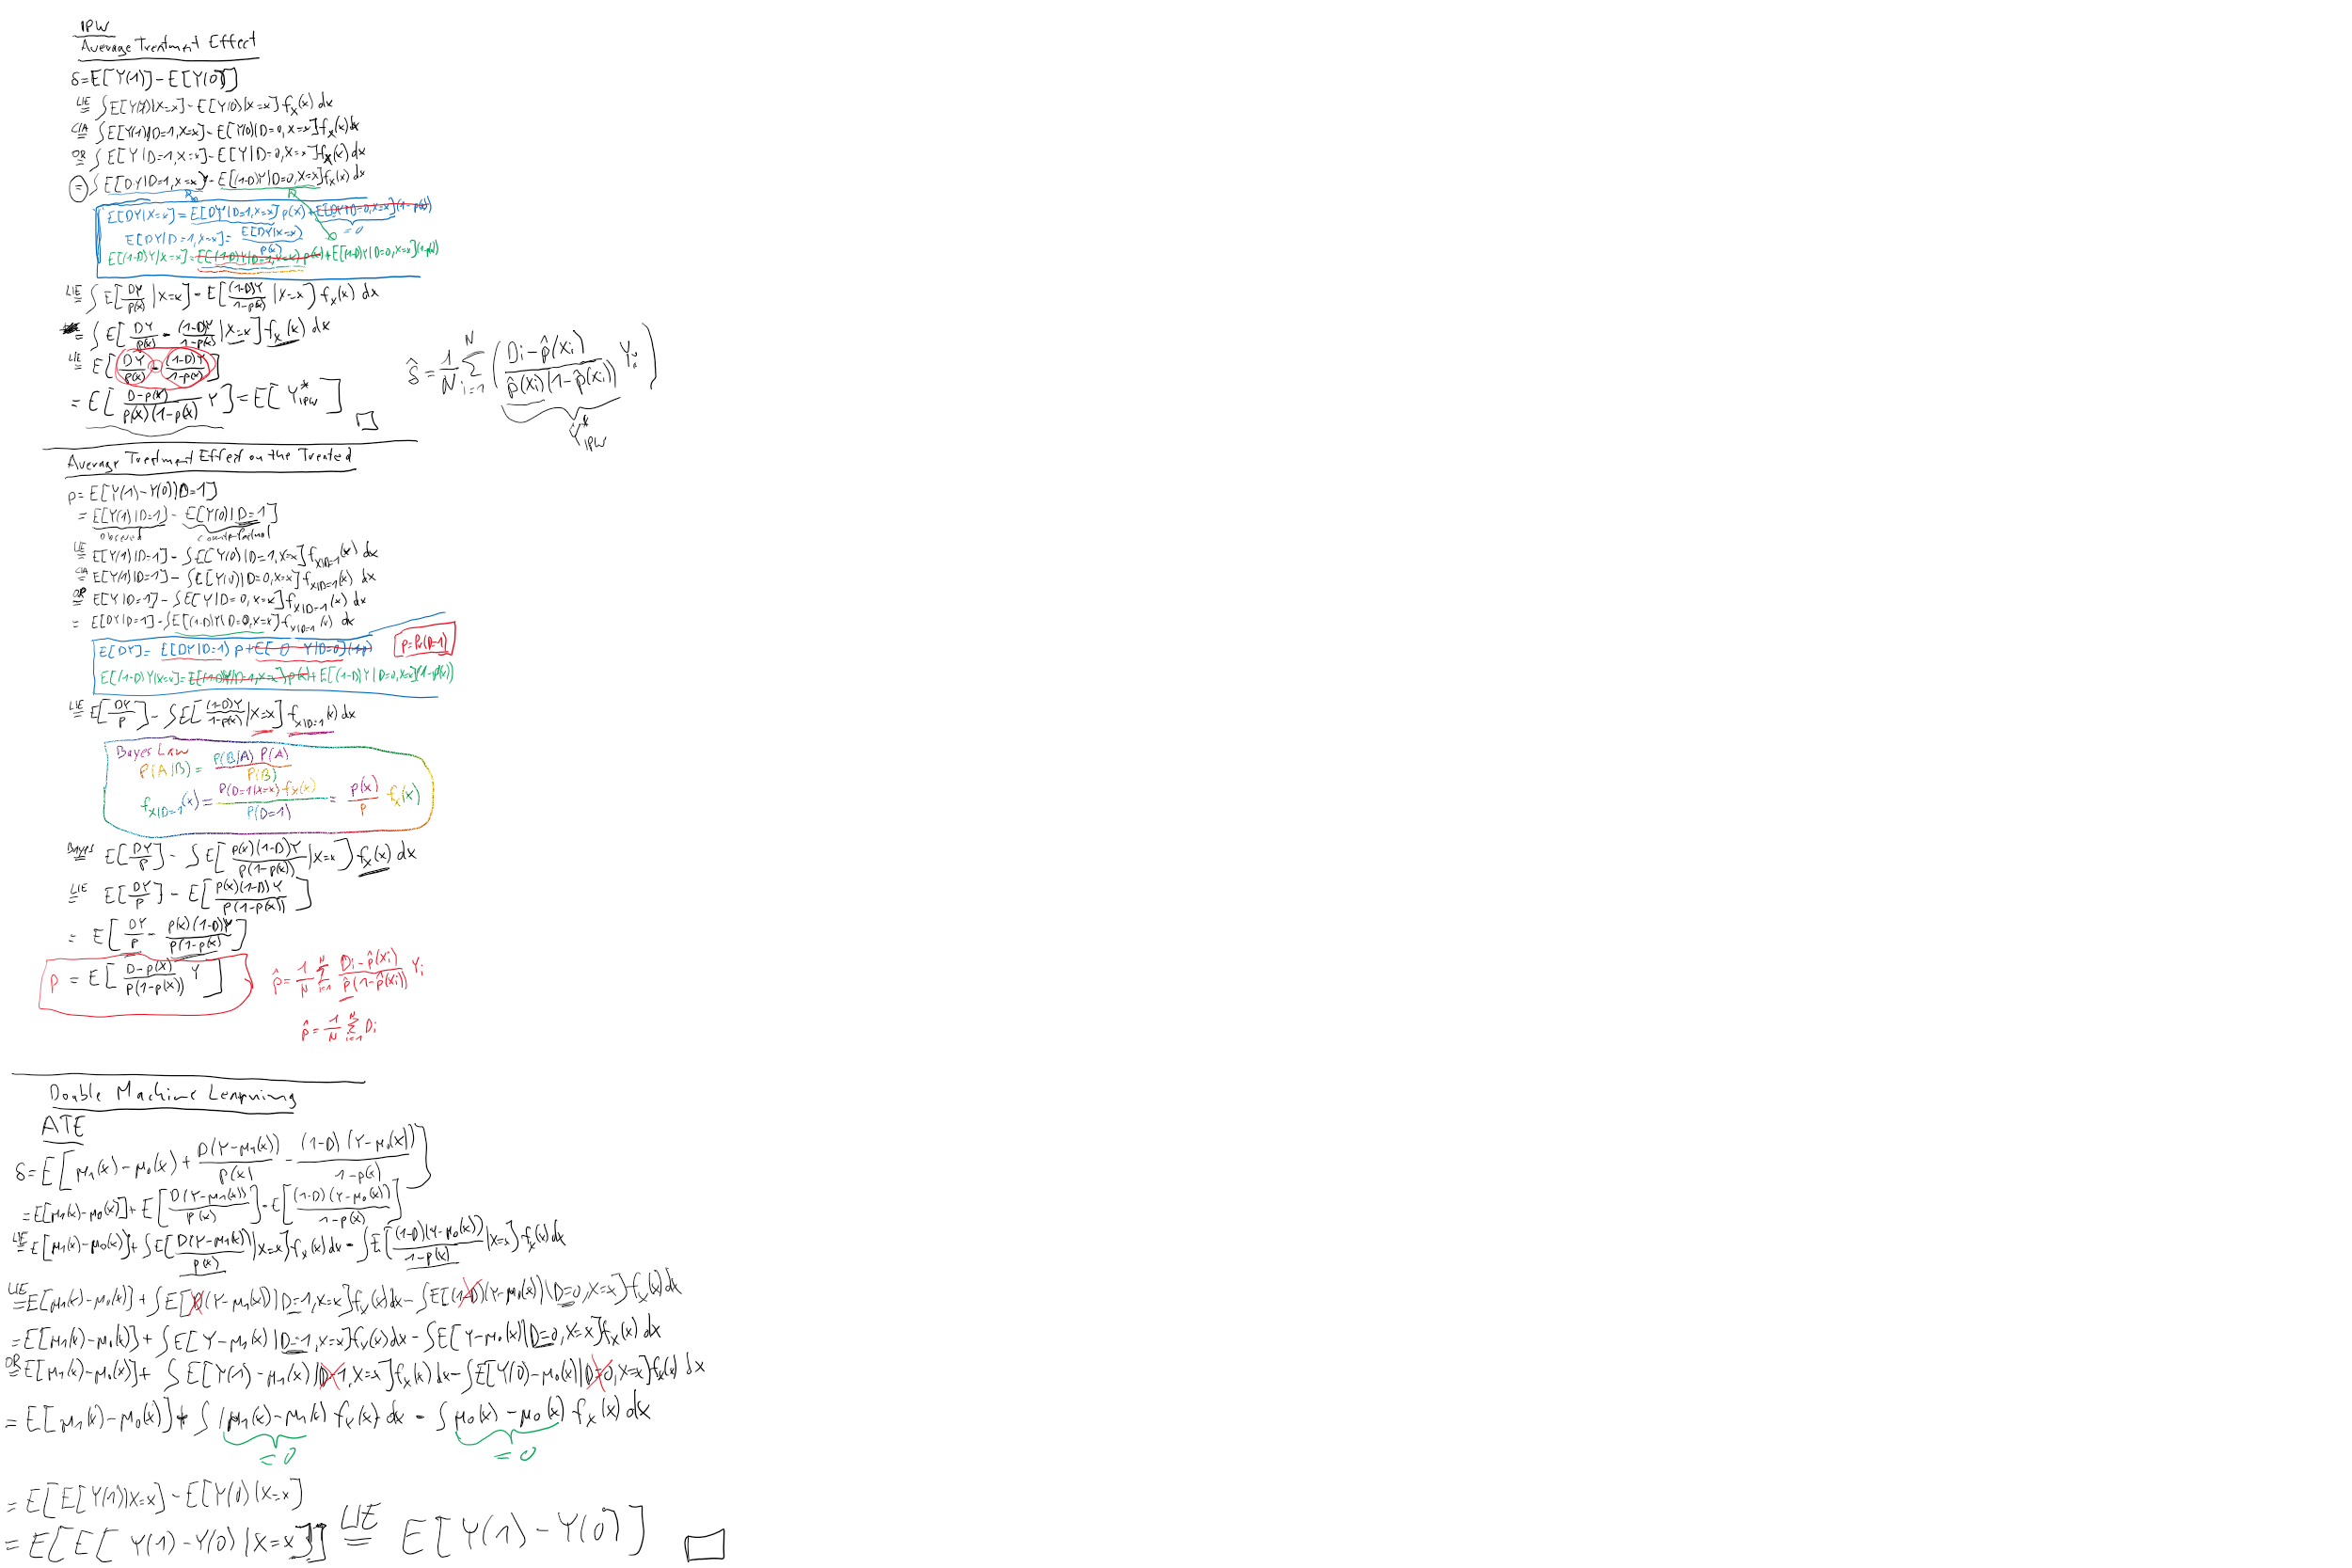 IPW
Average Treatment Effect
δ = E[Y(1)] - E[Y(0)]
LIE = ∫ E[Y(1)|X=x] - E[Y(0)|X=x] f_X(x) dx
CIA = ∫ E[Y(1)|D=1, X=x] - E[Y(0)|D=0, X=x] f_X(x) dx
OR = ∫ E[Y|D=1, X=x] - E[Y|D=0, X=x] f_X(x) dx
= ∫ E[DY|D=1, X=x] - E[(1-D)Y|D=0, X=x] f_X(x) dx
E[DY|X=x] = E[DY|D=1, X=x] p(x) + E[DY|D=0, X=x] (1-p(x))
= 0
E[DY|D=1, X=x] = E[DY|X=x] / p(x)
E[(1-D)Y|X=x] = E[(1-D)Y|D=1, X=x] p(x) + E[(1-D)Y|D=0, X=x] (1-p(x))
LIE = ∫ E[DY/p(x) | X=x] - E[(1-D)Y/(1-p(x)) | X=x] f_X(x) dx
= ∫ E[DY/p(x) - (1-D)Y/(1-p(x)) | X=x] f_X(x) dx
LIE = E[DY/p(x) - (1-D)Y/(1-p(x))]
= E[(D-p(x))/(p(x)(1-p(x))) Y] = E[Y*_IPW] □
δ̂ = 1/N Σ_{i=1}^N ((D_i - p̂(X_i))/(p̂(X_i)(1-p̂(X_i))) Y_i)
Y*_IPW
Average Treatment Effect on the Treated
ρ = E[Y(1) - Y(0)|D=1]
= E[Y(1)|D=1] - E[Y(0)|D=1]
observed counterfactual
LIE = E[Y(1)|D=1] - ∫ E[Y(0)|D=1, X=x] f_{X|D=1}(x) dx
CIA = E[Y(1)|D=1] - ∫ E[Y(0)|D=0, X=x] f_{X|D=1}(x) dx
OR = E[Y|D=1] - ∫ E[Y|D=0, X=x] f_{X|D=1}(x) dx
= E[DY|D=1] - ∫ E[(1-D)Y|D=0, X=x] f_{X|D=1}(x) dx
E[DY] = E[DY|D=1] p + E[0 Y|D=0] (1-p)
p = Pr(D=1)
E[(1-D)Y|X=x] = E[(1-D)Y|D=1, X=x] p(x) + E[(1-D)Y|D=0, X=x] (1-p(x))
LIE = E[DY/p] - ∫ E[(1-D)Y/(1-p(x)) | X=x] f_{X|D=1}(x) dx
Bayes Law
P(A|B) = P(B|A) P(A) / P(B)
f_{X|D=1}(x) = P(D=1|X=x) f_X(x) / P(D=1) = p(x)/p f_X(x)
Bayes = E[DY/p] - ∫ E[p(x)(1-D)Y/(p(1-p(x))) | X=x] f_X(x) dx
LIE = E[DY/p] - E[p(x)(1-D)Y/(p(1-p(x)))]
= E[DY/p - p(x)(1-D)Y/(p(1-p(x)))]
ρ = E[(D-p(x))/(p(1-p(x))) Y]
ρ̂ = 1/N Σ_{i=1}^N (D_i - p̂(X_i))/(p̂(1-p̂(X_i))) Y_i
p̂ = 1/N Σ_{i=1}^N D_i
Double Machine Learning
ATE
δ = E[μ_1(x) - μ_0(x) + D(Y-μ_1(x))/p(x) - (1-D)(Y-μ_0(x))/(1-p(x))]
= E[μ_1(x) - μ_0(x)] + E[D(Y-μ_1(x))/p(x)] - E[(1-D)(Y-μ_0(x))/(1-p(x))]
LIE = E[μ_1(x) - μ_0(x)] + ∫ E[D(Y-μ_1(x))/p(x) | X=x] f_X(x) dx - ∫ E[(1-D)(Y-μ_0(x))/(1-p(x)) | X=x] f_X(x) dx
LIE = E[μ_1(x) - μ_0(x)] + ∫ E[D(Y-μ_1(x))|D=1, X=x] f_X(x) dx - ∫ E[(1-D)(Y-μ_0(x))|D=0, X=x] f_X(x) dx
= E[μ_1(x) - μ_0(x)] + ∫ E[Y-μ_1(x)|D=1, X=x] f_X(x) dx - ∫ E[Y-μ_0(x)|D=0, X=x] f_X(x) dx
OR = E[μ_1(x) - μ_0(x)] + ∫ E[Y(1)-μ_1(x)|D=1, X=x] f_X(x) dx - ∫ E[Y(0)-μ_0(x)|D=0, X=x] f_X(x) dx
= E[μ_1(x) - μ_0(x)] + ∫ μ_1(x) - μ_1(x) f_X(x) dx - ∫ μ_0(x) - μ_0(x) f_X(x) dx
= 0 = 0
= E[E[Y(1)|X=x] - E[Y(0)|X=x]
= E[E[Y(1) - Y(0)|X=x]] LIE = E[Y(1) - Y(0)] □